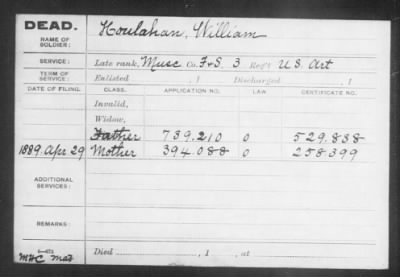 DEAD.
NAME OF SOLDIER: Houlahan, William
SERVICE: Late rank, Musc Co. F&S 3 Reg't U.S. Art
TERM OF SERVICE: Enlisted , 1 Discharged , 1
DATE OF FILING. CLASS. APPLICATION NO. LAW CERTIFICATE NO.
Invalid,
Widow,
Father 739.210 0 529.838
1889. Apr 29 Mother 394.088 0 258399
ADDITIONAL SERVICES:
REMARKS:
Died , 1 , at